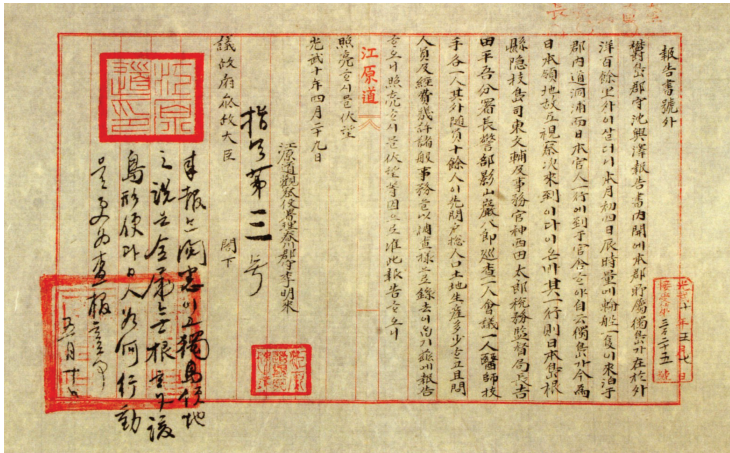 報告書號外
欝島郡守沈興澤報告書內開에本郡所屬獨島가在於外
洋百餘里外이삽더니本月初四日辰時量에輪船一隻이來泊于
郡內道洞浦而日本官人一行에到于官舍ᄒᆞ야自云獨島가今爲
日本領地故로視察次來到이다이온바其一行則日本島根
縣隱技島司東文輔及事務官神西田太郞稅務監督局長吉
田平吾分署長警部影山巖八郞巡查一人會議一人醫師技
手各一人其外隨員十餘人이先問戶摠人口土地生產多少ᄒᆞ고且問
人員及經費幾許諸般事務를以調查樣으로錄去이ᄋᆞᆸ기玆에報告
ᄒᆞ오니照亮ᄒᆞ시믈伏望等因으로准此報告ᄒᆞ오니
照亮ᄒᆞ시믈伏望
江原道
光武十年四月二十九日
江原道觀察使署理春川郡守李明來
議政府參政大臣 閣下
指令第三号
來報는閱悉이고獨島領地
之說은全屬無根ᄒᆞ나該
島形便과日人如何行動
을更爲查報ᄒᆞᆯ事
五月二十日
光武十年五月七日
接受第三百二十五號